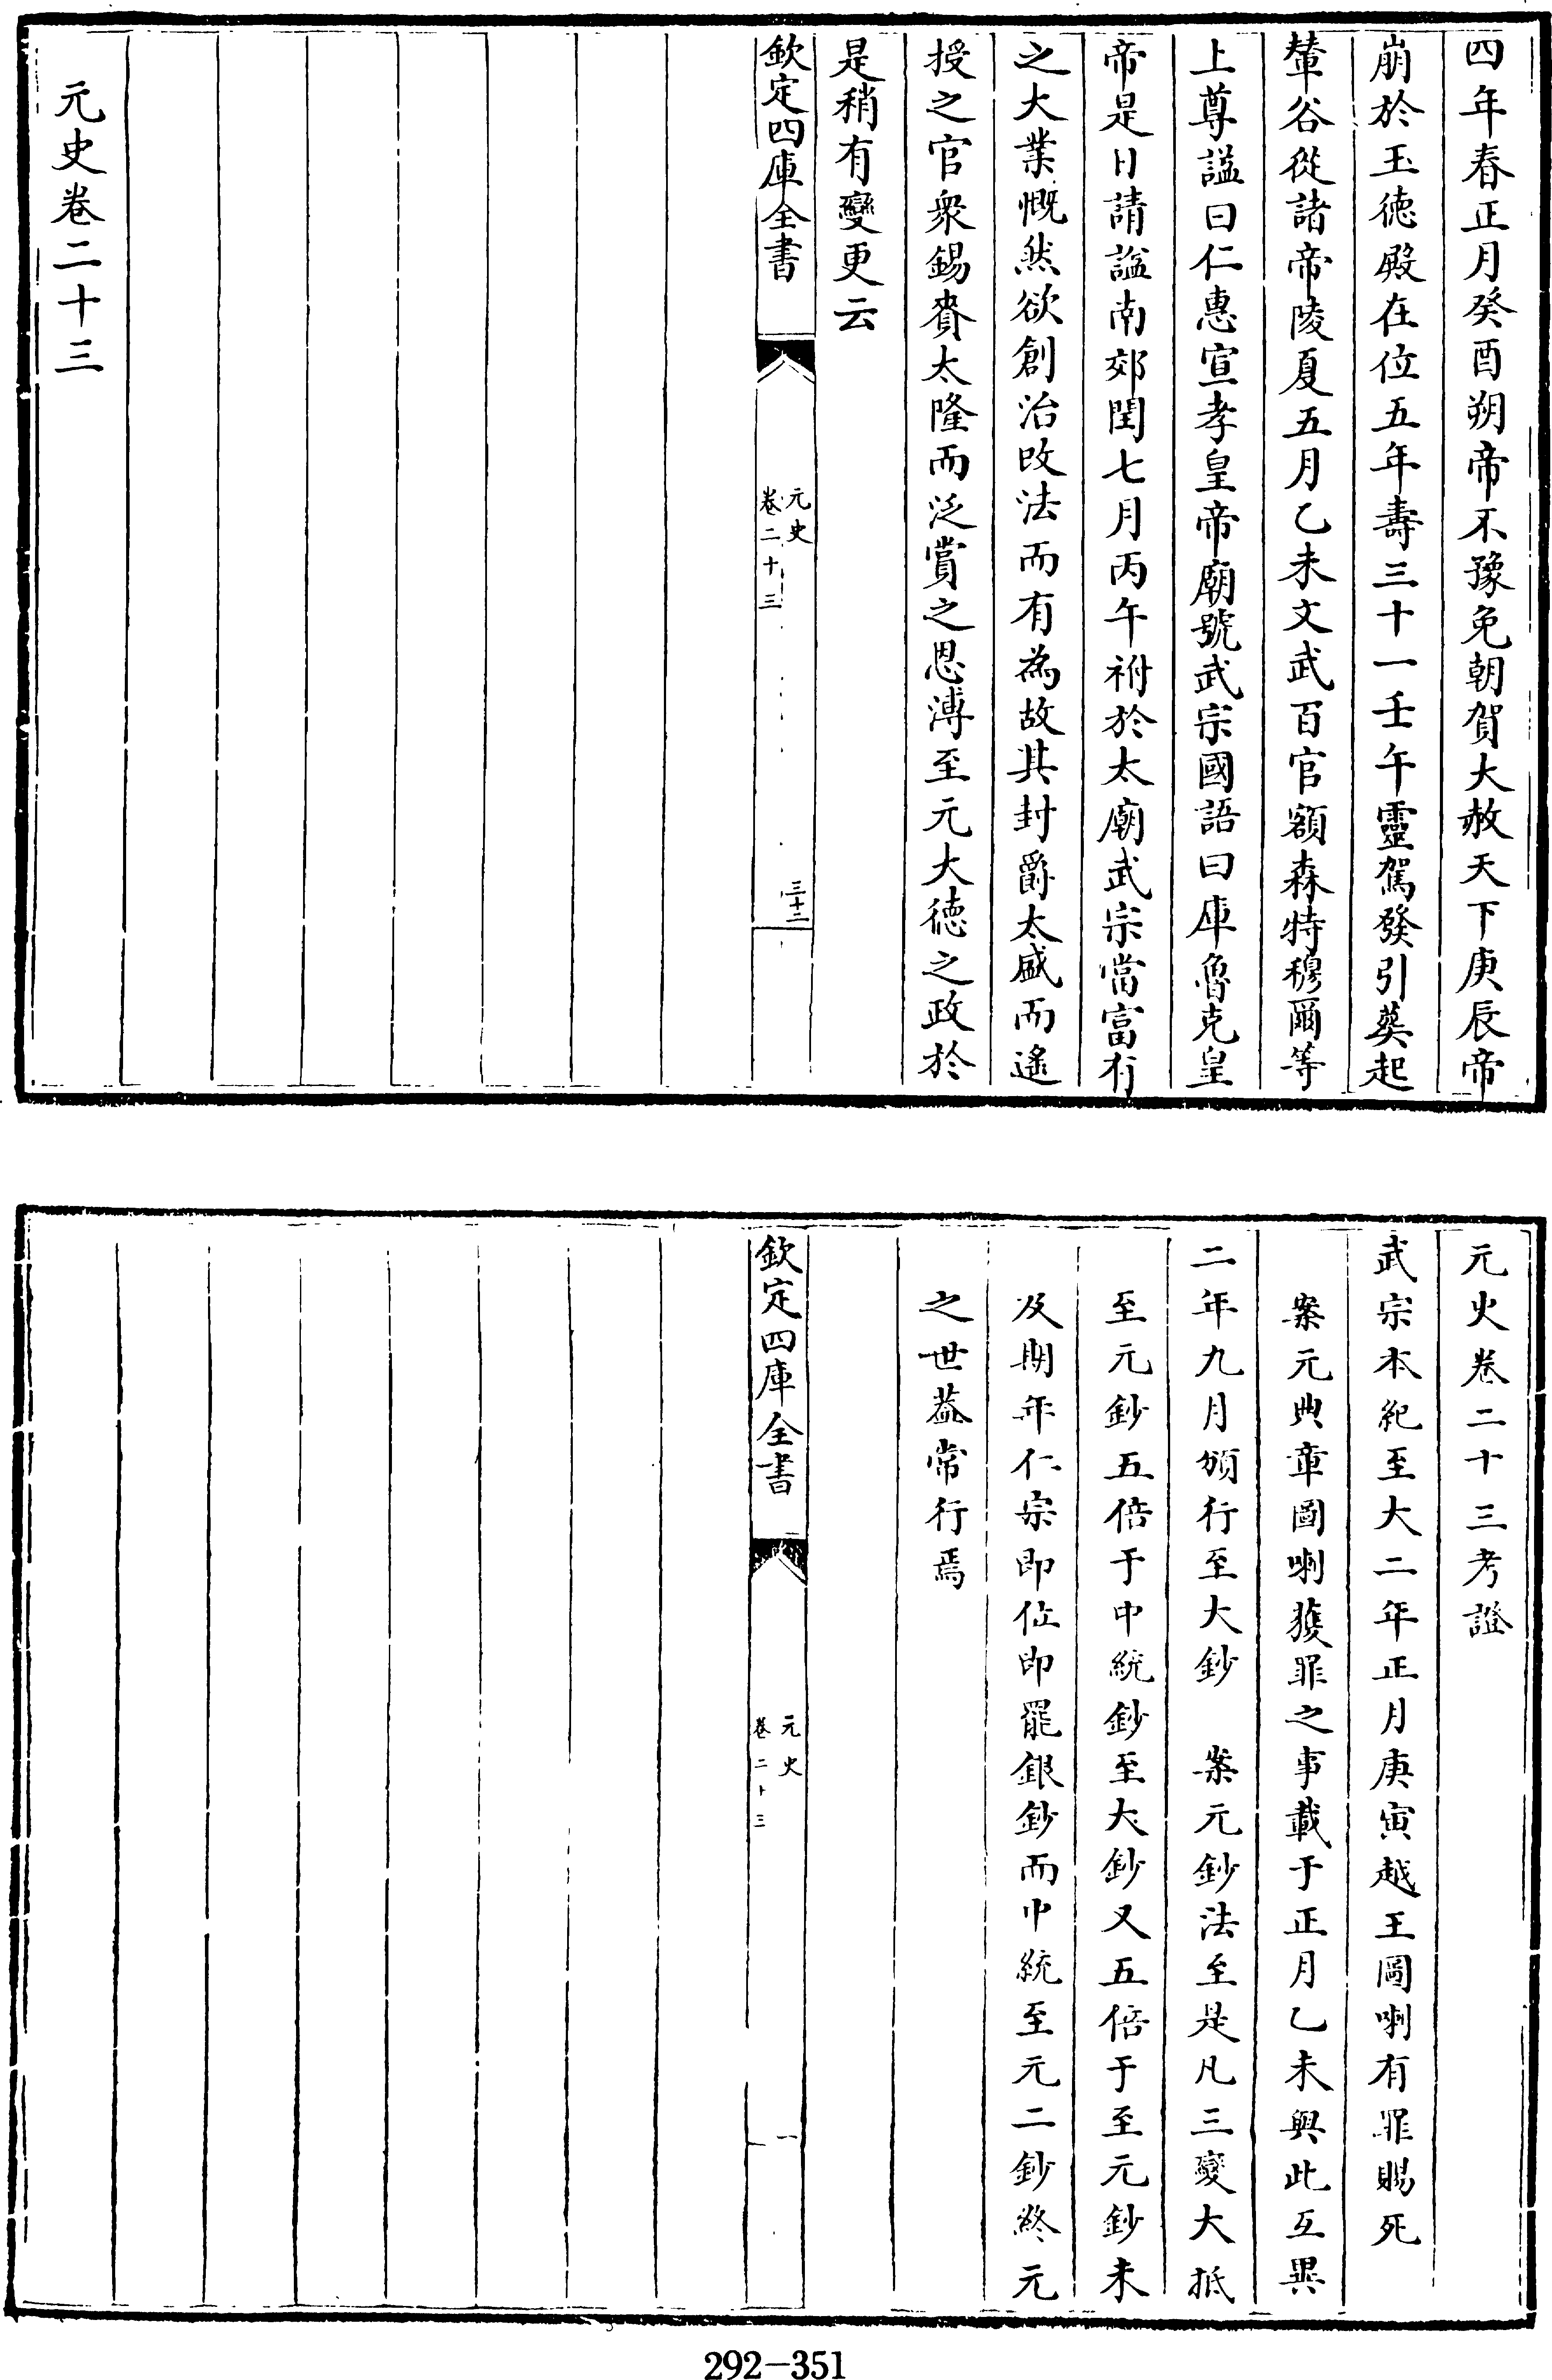 四年春正月癸酉朔帝不豫免朝賀大赦天下庚辰帝
崩於玉德殿在位五年壽三十一壬午靈駕發引葬起
輦谷從諸帝陵夏五月乙未文武百官額森特穆爾等
上尊謚曰仁惠宣孝皇帝廟號武宗國語曰庫魯克皇
帝是日請謚南郊閏七月丙午祔於太廟武宗當富有
之大業慨然欲創治改法而有為故其封爵太盛而遙
授之官衆錫賚太隆而泛賞之恩溥至元大德之政於
是稍有變更云
欽定四庫全書
元史
卷二十三
三十二
元史卷二十三
元史卷二十三考證
武宗本紀至大二年正月庚寅越王圖喇有罪賜死
案元典章圖喇獲罪之事載于正月乙未與此互異
二年九月頒行至大鈔 案元鈔法至是凡三變大抵
至元鈔五倍于中統鈔至大鈔又五倍于至元鈔未
及期年仁宗即位即罷銀鈔而中統至元二鈔終元
之世葢常行焉
欽定四庫全書
元史
卷二十三
一
292-351